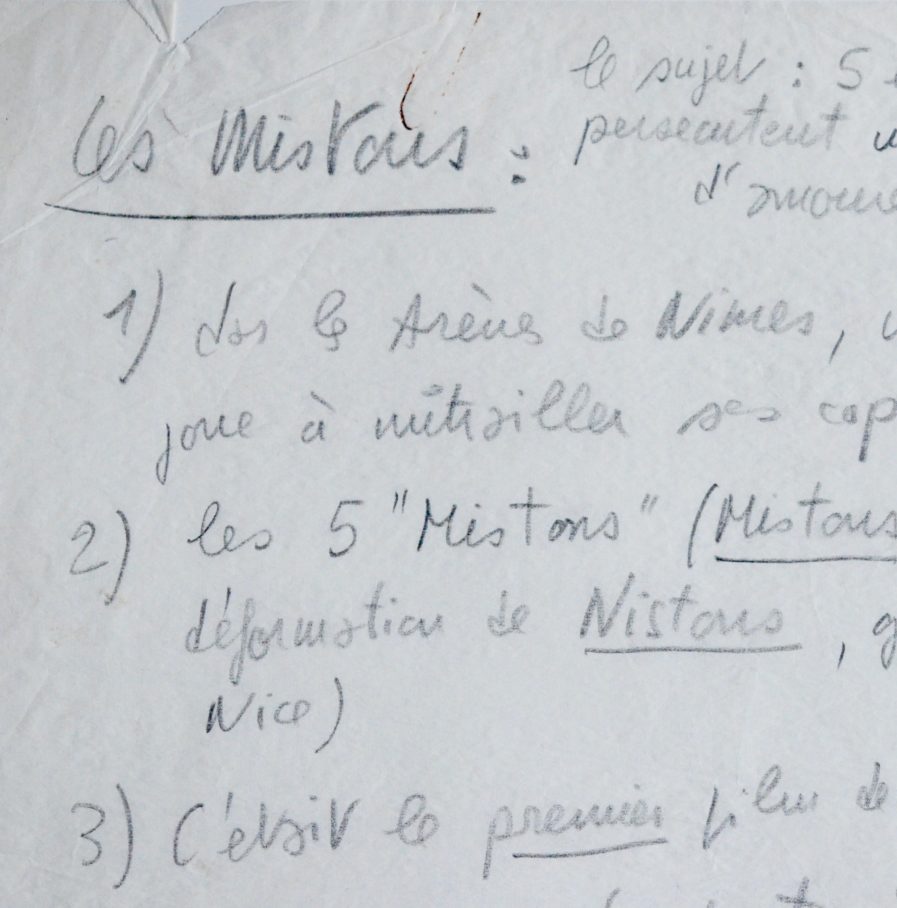 le sujet : 5
Les Mistons : persecutent
d'amour
1) ds le Arènes de Nimes,
joue à mitrailler ses cop
2) les 5 "Mistons" (Mistons
déformation de Nistons, g
Nice)
3) C'était le premier film de